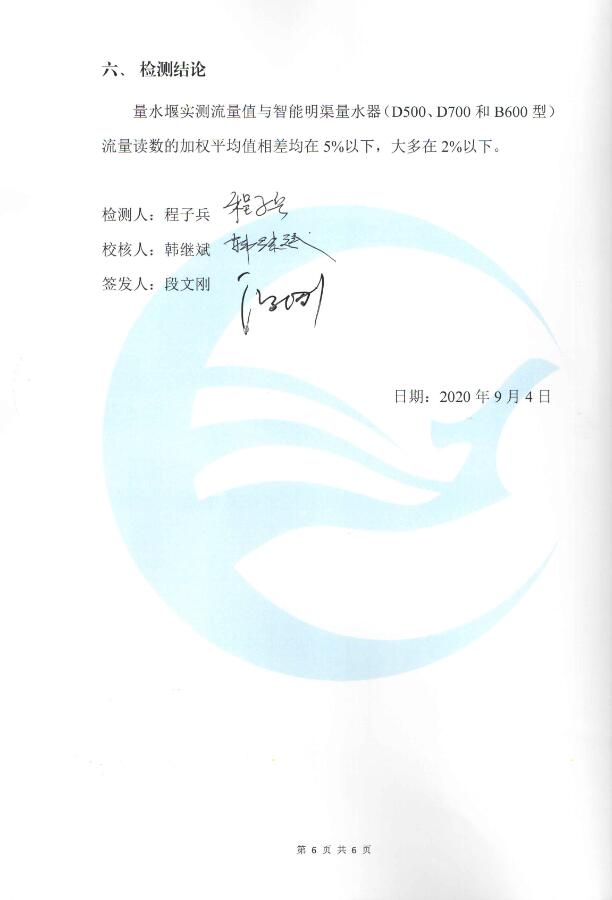 六、 检测结论
量水堰实测流量值与智能明渠量水器（D500、D700 和 B600 型）
流量读数的加权平均值相差均在 5%以下，大多在 2%以下。
检测人：程子兵 程子兵
校核人：韩继斌 韩继斌
签发人：段文刚
日期：2020 年 9 月 4 日
第 6 页 共 6 页